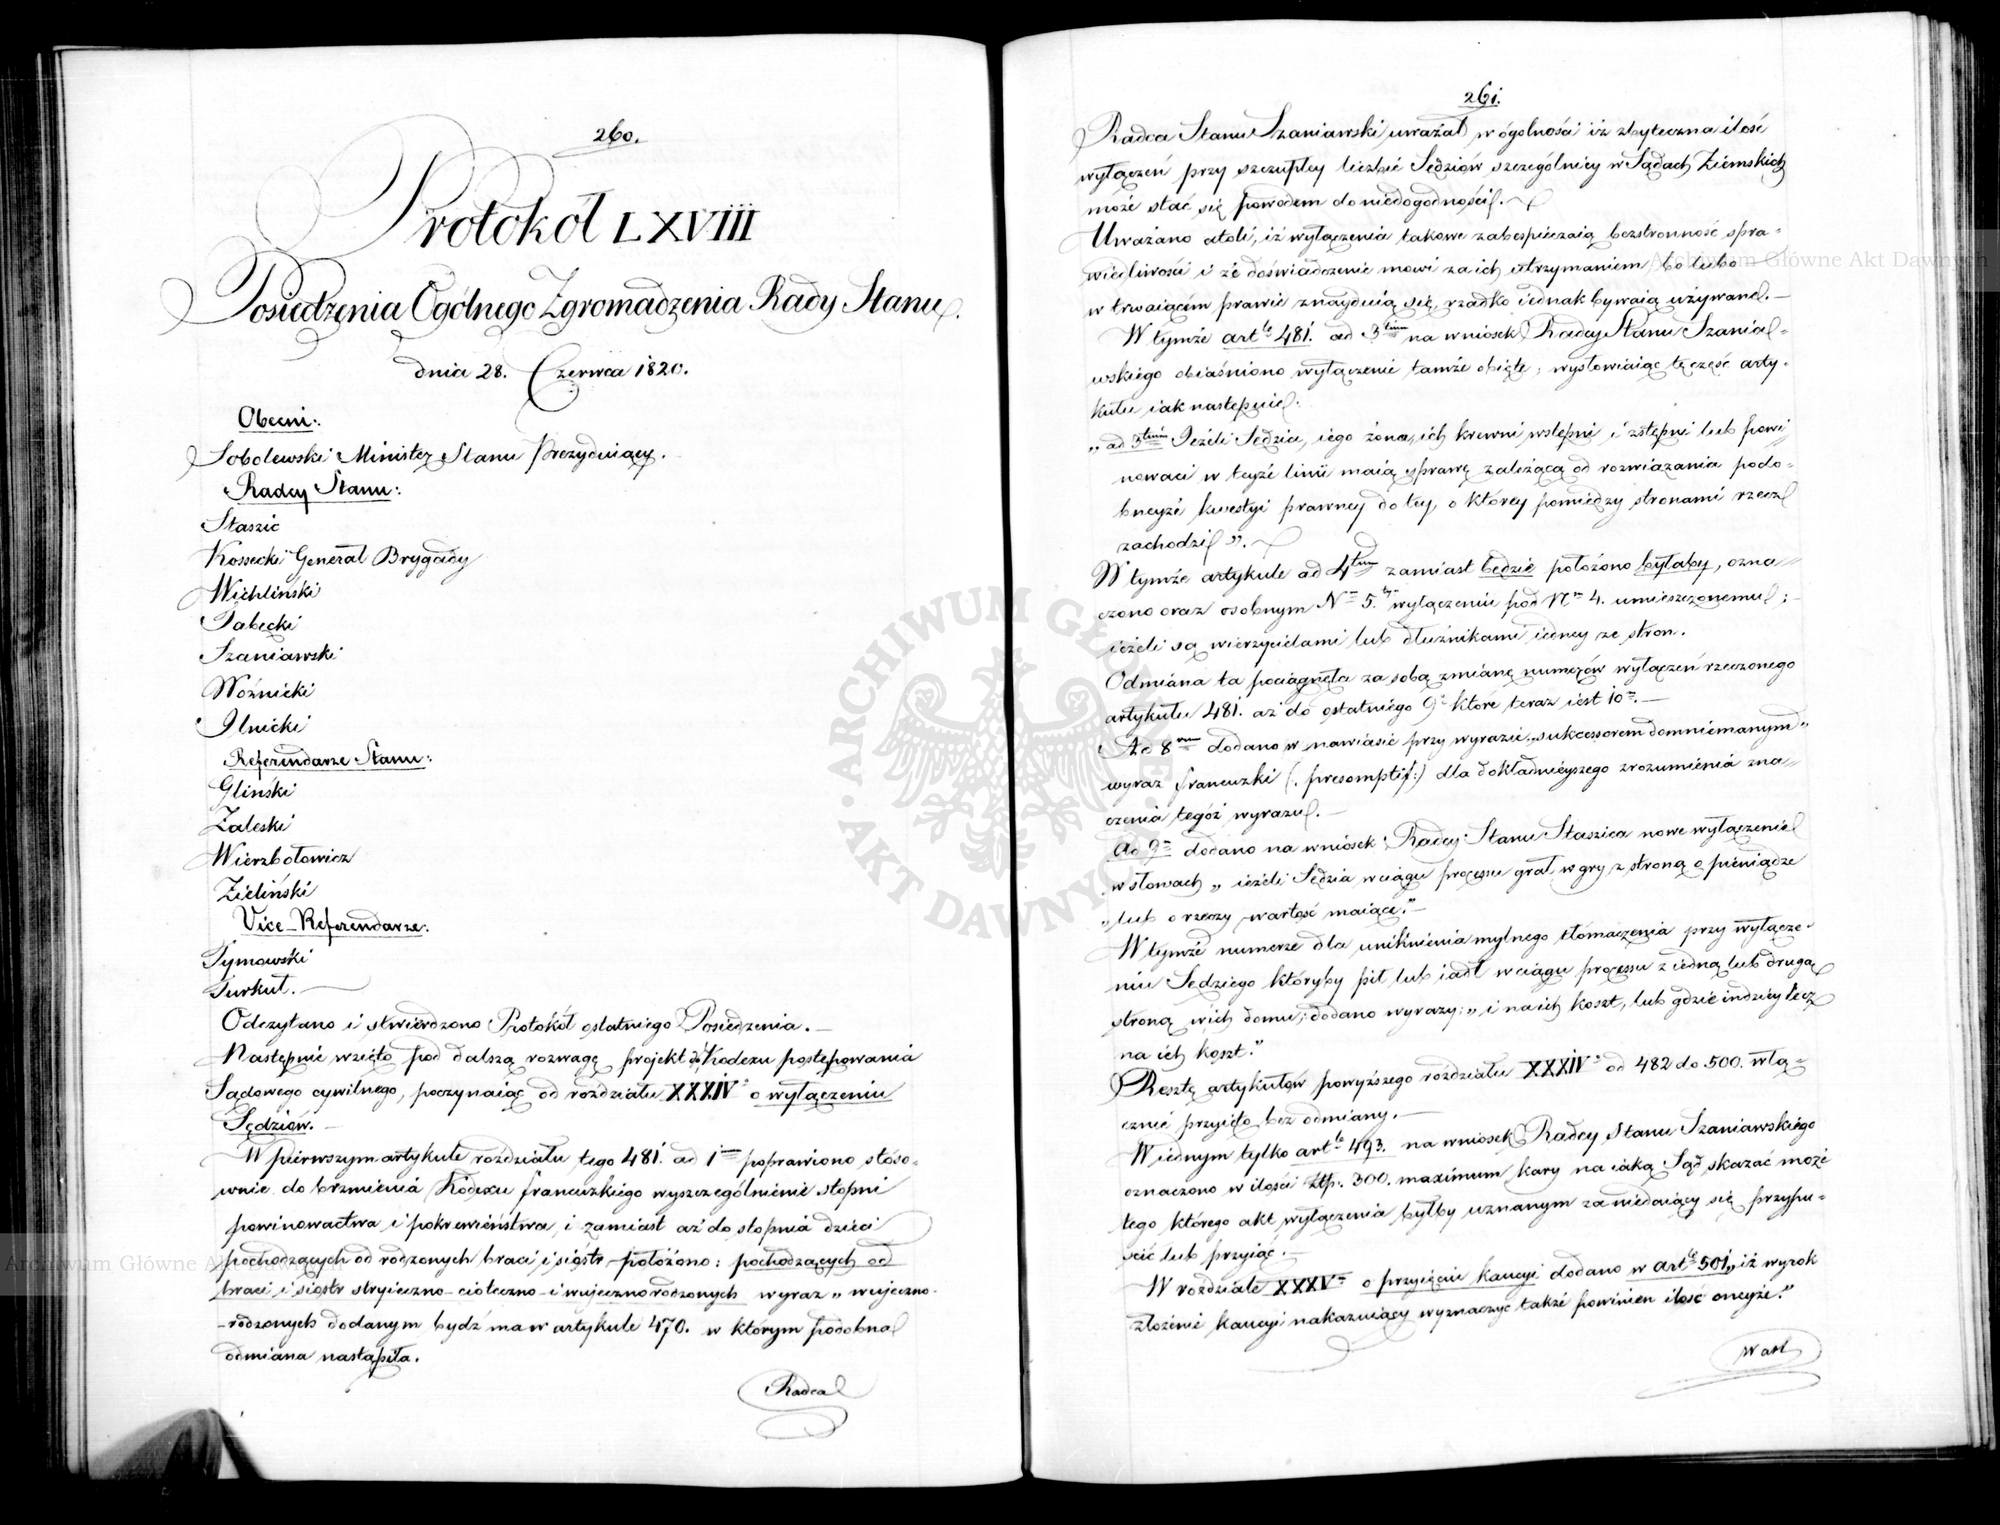 260.
Protokół LXVIII
Posiedzenia Ogólnego Zgromadzenia Rady Stanu.
dnia 28. Czerwca 1820.
Obecni:
Sobolewski Minister Stanu Prezyduiący.
Radcy Stanu:
Staszic
Kossecki Generał Brygady
Wichliński
Tabęcki
Szaniawski
Woźnicki
Ilnicki
Referendarze Stanu:
Gliński
Zaleski
Wierzbołowicz
Zieliński
Vice-Referendarze:
Tymowski
Turkuł.
Odczytano i stwierdzono Protokół ostatniego Posiedzenia.
Następnie wzięto pod dalszą rozwagę projekt do Kodexu postępowania
Sądowego cywilnego, poczynaiąc od rozdziału XXXIV° o wyłączeniu
Sędziów.
W pierwszym artykule rozdziału tego 481. ad 1mum poprawiono stoso-
wnie do brzmienia Kodexu francuzkiego wyszczególnienie stopni
powinowactwa i pokrewieństwa, i zamiast aż do stopnia dzieci
pochodzących od rodzonych braci i siostr położono: pochodzących od
braci i siostr stryieczno-ciotczno-i wuieczno rodzonych wyraz „wuieczno-
-rodzonych dodanym bydź ma w artykule 470. w którym podobna
odmiana nastąpiła.
Radca
261.
Radca Stanu Szaniawski uważał w ogólności iż zbyteczna ilość
wyłączeń przy szczupłey liczbie Sędziów szczególniey w Sądach Ziemskich
może stać się powodem do niedogodności.
Uważano atoli, iż wyłączenia takowe zabespieczaią bezstronność spra-
wiedliwości i że doświadczenie mówi za ich utrzymaniem bo lubo
w trwaiącém prawie znayduią się, rzadko iednak bywaią używane.
W tymże artle 481. ad 3tium na wniosek Radcy Stanu Szania-
wskiego obiaśniono wyłączenie tamże obięte, wysłowiaiąc tę część arty-
kułu iak następuie:
„ad 3tium Ieżeli Sędzia, iego żona, ich krewni wstępni i zstępni lub powi
nowaci w teyże linii maią sprawę zależącą od rozwiązania podo-
bneyże kwestyi prawney do tey, o którey pomiędzy stronami rzecz
zachodzi".
W tymże artykule ad 4tum zamiast będzie położono byłaby, ozna-
czono oraz osobnym Nm 5. wyłączenie pod Nm 4. umieszczonemu;
ieżeli są wierzycielami lub dłużnikami iedney ze stron.
Odmiana ta pociągnęła za sobą zmianę numerów wyłączeń rzeczonego
artykułu 481. aż do ostatniego 9° które teraz iest 10m.
Ad 8vum dodano w nawiasie przy wyrazie „sukcessorem domniemanym"
wyraz francuzki (:presomptif:) dla dokładnieyszego zrozumienia zna-
czenia tegóż wyrazu.
Ad 9m dodano na wniosek Radcy Stanu Staszica nowe wyłączenie
w słowach „ieżeli Sędzia w ciągu processu grał w gry z stroną o pieniądze
„lub o rzeczy wartość maiące."
W tymże numerze dla uniknienia mylnego tłómaczenia przy wyłącze-
niu Sędziego któryby pił lub iadł w ciągu processu z iedną lub drugą
stroną w ich domu; dodano wyrazy: „i na ich koszt, lub gdzie indziey lecz
na ich koszt."
Resztę artykułów powyższego rozdziału XXXIV° od 482 do 500. włą-
cznie przyięto bez odmiany.
W iednym tylko artle 493. na wniosek Radcy Stanu Szaniawskiego
oznaczono w ilości złp. 300. maximum kary na iaką Sąd skazać może
tego którego akt wyłączenia byłby uznanym za niedaiący się przypu-
ścić lub przyiąć.
W rozdziale XXXVm o przyięciu kaucyi dodano w artle 501 „iż wyrok
złożenie kaucyi nakazuiący wyznaczyć także powinien ilość oneyże."
W art
Archiwum Główne Akt Dawnych
Archiwum Główne Akt Dawnych
ARCHIWUM GŁÓWNE AKT DAWNYCH